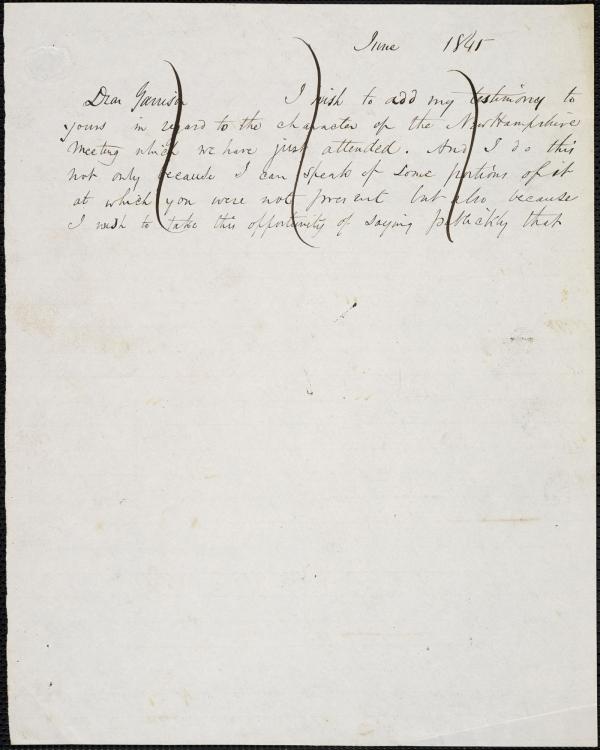 June 1845
Dear Garrison I wish to add my testimony to
yours in regard to the character of the New Hampshire
Meeting which we have just attended. And I do this
not only because I can speak of some portions of it
at which you were not present but also because
I wish to take this opportunity of saying publickly that